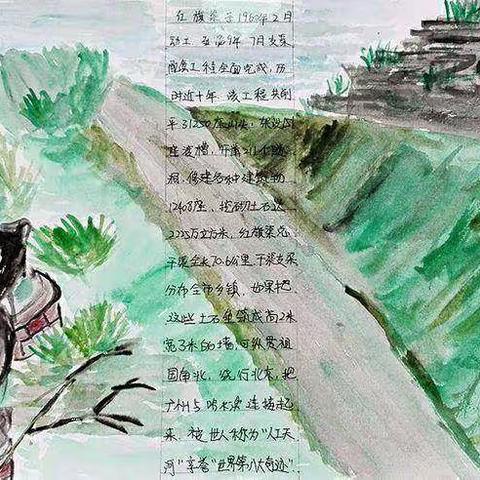 红旗渠于1960年2月
动工 至1969年 7月支渠
配套工程全面完成,历
时近十年 该工程共削
平了1250座山头,架设
座渡槽,开凿211个隧
洞,修建各种建筑物
12408座,挖砌土石达
2225万立方米,红旗渠总
干渠全长70.6公里干渠支渠
分布全市乡镇。如果把
这些土石垒筑成高2米
宽3米的墙,可纵贯祖
国南北,绕行北京,把
广州与哈尔滨连接起
来。被世人称为"人工天
河"享誉"世界第八大奇迹"